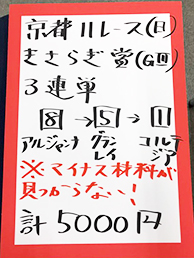 京都11レース(日)
きさらぎ賞(GⅢ)
3連単
8→5→1
アルジャンナ グランレイ コルテジア
※マイナス材料が
見つからない!
計5000円